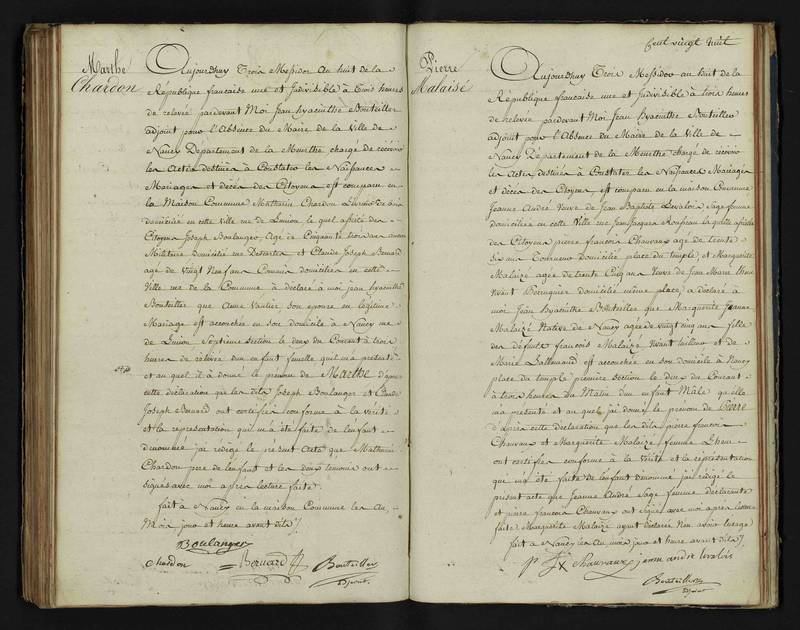 Marthe
Chardon
Aujourdhuy Trois Messidor an huit de la
République française une et Indivisible à Trois heures
de relevée pardevant Moi Jean hyacinthe Bouteiller
adjoint pour l'Absence du Maire de la Ville de
Nancy Departement de la Meurthe chargé de récevoir
les Actes destinés à Constater les Naissances
Mariages et décès des Citoyens est comparu en
la Maison Commune Mathurin Chardon
domicilié en cette Ville rue de Lunion le quel assisté des
Citoyens Joseph Boulanger, agé de Cinquante trois ans ancien
Militaire domicilié rue Descartes et Claude Joseph Benard
agé de vingt Neuf ans Commis domicilié en cette
Ville rue de la Commune à déclaré à moi jean hyacinthe
Bouteiller que Anne Vautier, son epouse en légitime
Mariage est accouchée en son domicile à Nancy rue
de Lunion Septième section le deux du Courant à trois
heures de relevée d'un enfant femelle qu'il m'a présenté
et au quel il à donné le prénom de Marthe d'après
cette déclaration que les dits Joseph Boulanger et Claude
Joseph Benard ont certifiée conforme à la vérité
et la représentation qui m'a été faite de lenfant
dénommé jai rédigé le présent Acte que Mathurin
Chardon pere de lenfant et les deux temoins ont
signés avec moi après lecture faite.
fait à Nancy en la maison Commune les an,
Mois jour et heure avant dits /.
Boulanger
Chardon Benard Bouteiller
Adjoint
Cent vingt huit
Pierre
Malaisé
Aujourdhuy Trois Messidor an huit de la
République française une et Indivisible à trois heures
de relevée pardevant Moi Jean hyacinthe Bouteiller
adjoint pour l'Absence du Maire de la Ville de
Nancy Département de la Meurthe chargé de récevoir
les Actes destinés à Constater les Naissances Mariages
et décès des Citoyens est comparu en la maison Commune
Jeanne André Veuve de Jean Baptiste Levalois Sage femme
domiciliée en cette Ville rue Jean Jacques Rousseau la quelle assistée
des Citoyens pierre francois Chauvaux agé de trente
six ans Tourneur domicilié place du temple, et Marguerite
Malaizé agée de trente Cinq ans Veuve de Jean Marie
vivant Perruquier domiciliée même place, a déclaré à
moi Jean hyacinthe Bouteiller que Marguerite Jeanne
Malaizé Native de Nancy agée de vingt cinq ans fille
des défunts francois Malaizé vivant tailleur et de
Marie Lallemand est accouchée en son domicile à Nancy
place du temple première section le deux du Courant
à trois heures du Matin d'un enfant Mâle qu'elle
m'a présenté et au quel jai donné le prénom de Pierre
d'après cette déclaration que les dits pierre francois
Chauvaux et Marguerite Malaizé femme
ont certifiée conforme à la vérité et la représentation
que m'a été faite de lenfant dénommé jai rédigé le
présent acte que Jeanne André Sage femme déclarante
et pierre francois Chauvaux ont signé avec moi après lecture
faite Marguerite Malaizé ayant déclaré N'en avoir lusage
fait à Nancy les an, mois jour et heure avant dits /.
Chauvaux jeanne andré levalois
Bouteiller
Adjoint